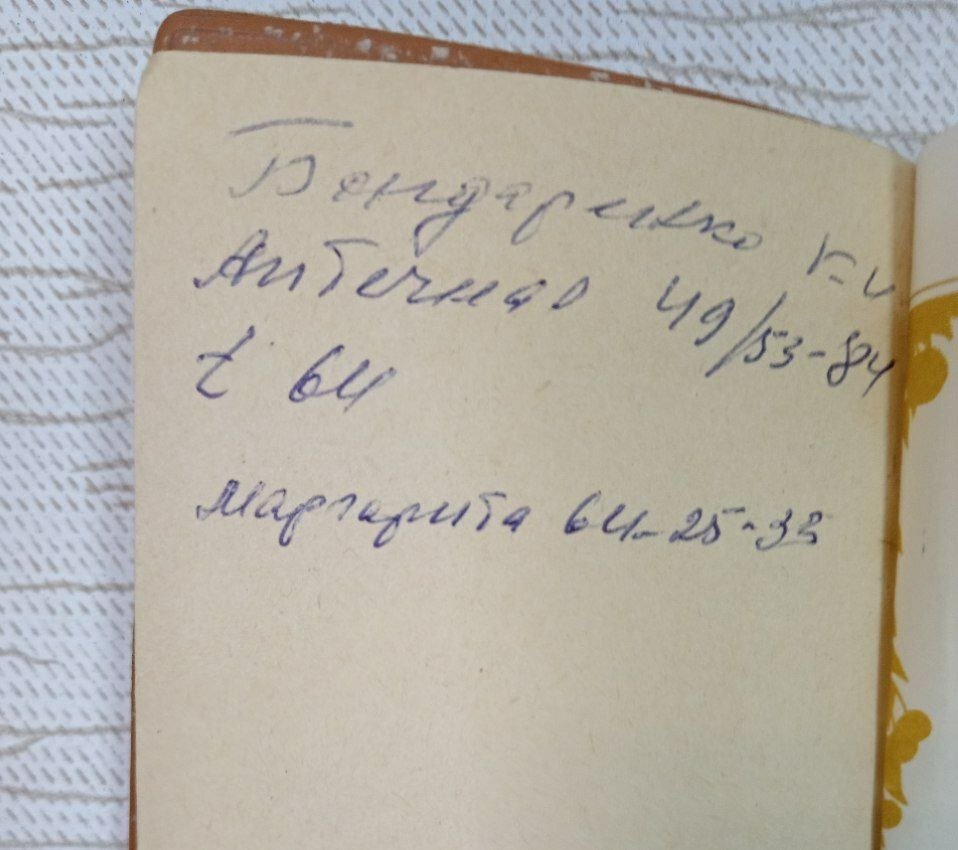 Бондаренко
Аптечная 49/53-84
t 64
Маргарита 64-25-33